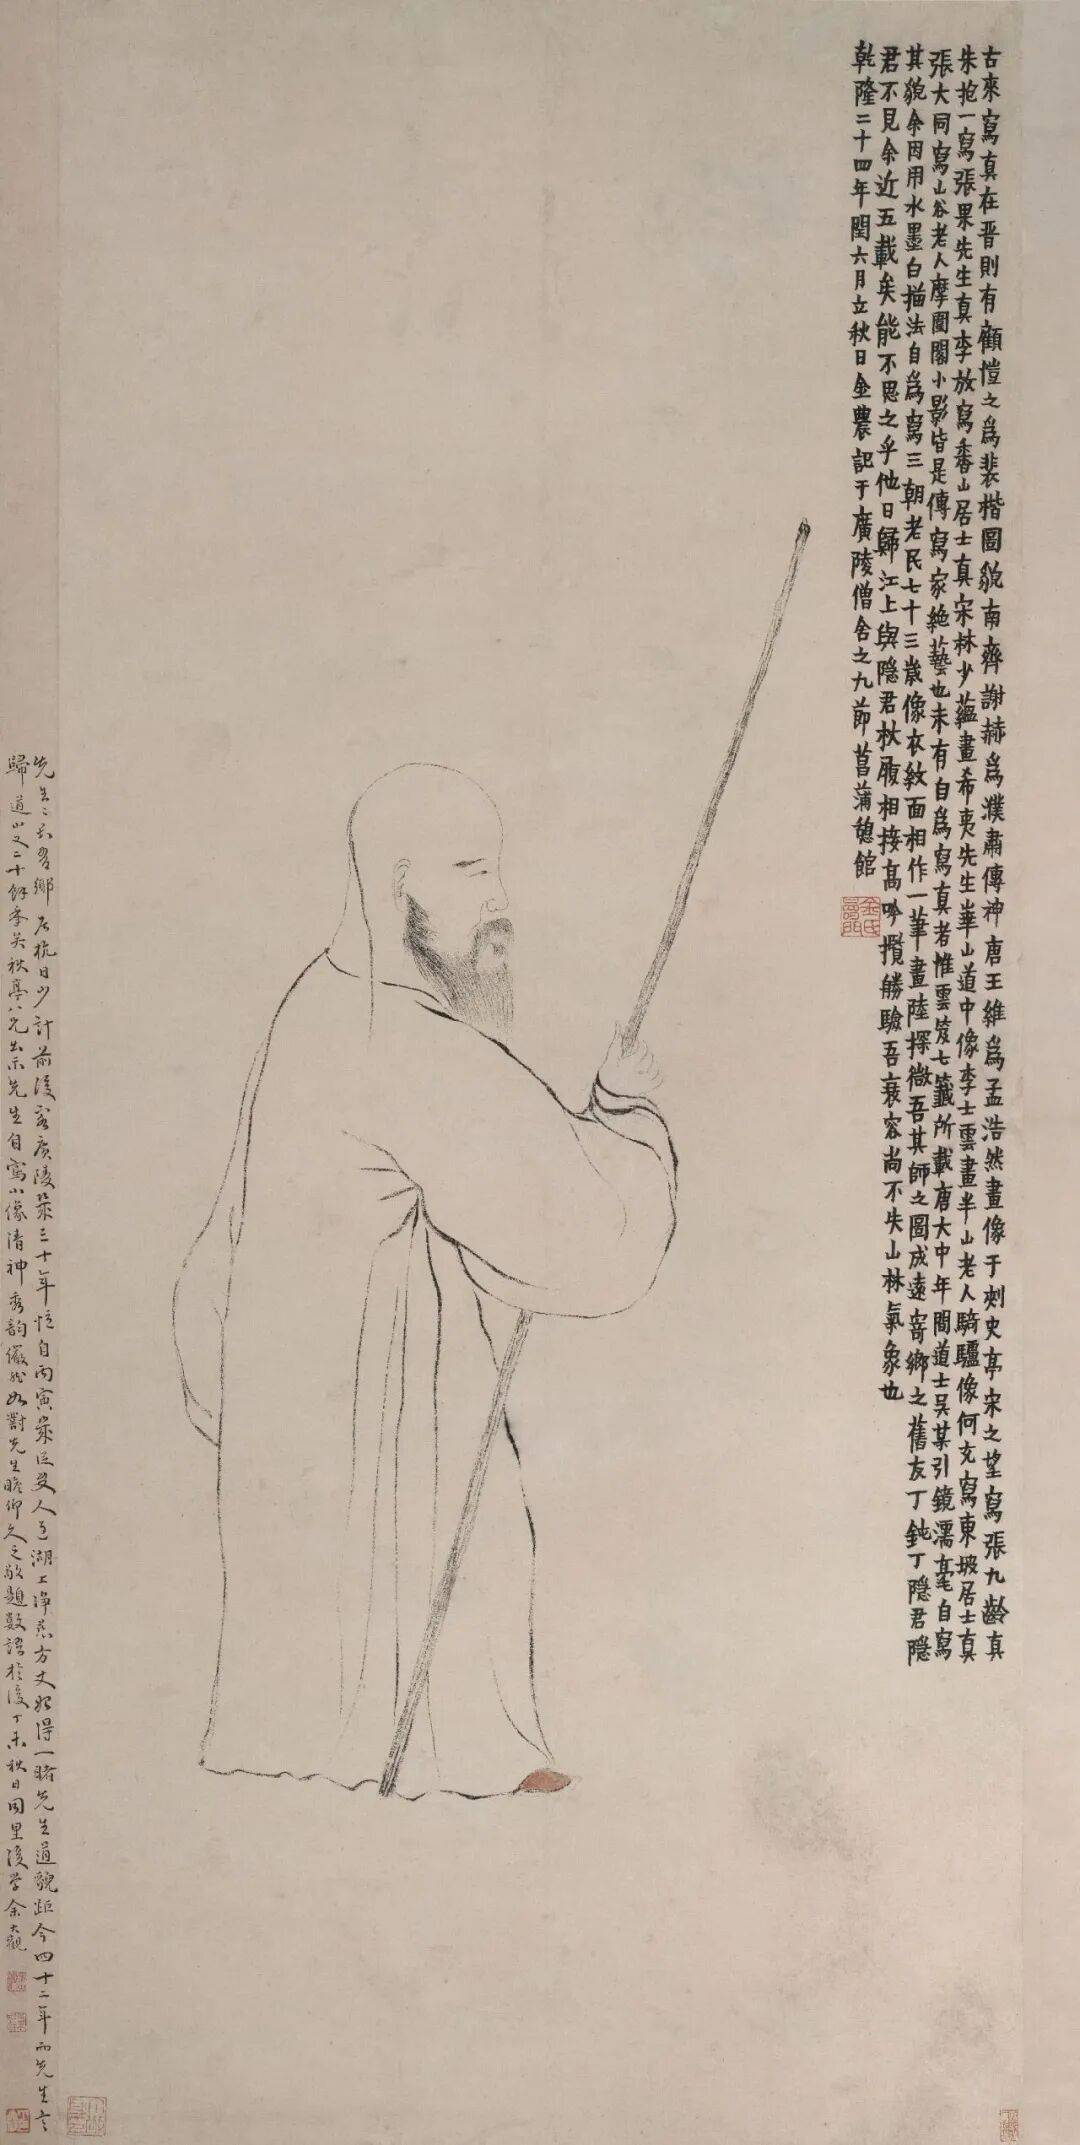 古來寫真在晉則有顧愷之為裴楷圖貌南齊謝赫為濮肅傳神唐王維為孟浩然畫像于刺史亭宋之望寫張九齡真
朱抱一寫張果先生真李放寫香山居士真宋林少蘊畫希夷先生華山道中像李士雲畫半山老人騎驢像何充寫東坡居士真
張大同寫山谷老人摩圍閣小影皆是傳寫家絕藝也未有自為寫真者惟雲笈七籤所載唐大中年間道士吳某引鏡濡毫自寫
其貌余因用水墨白描法自為寫三朝老民七十三歲像衣紋面相作一筆畫陸探微吾其師之圖成遠寄鄉之舊友丁鈍丁隱君隱
君不見余近五載矣能不思之乎他日歸江上與隱君杖履相接高吟攬勝驗吾衰容尚不失山林氣象也
乾隆二十四年閏六月立秋日金農記于廣陵僧舍之九節菖蒲憩館
金氏
壽門
先生吾鄉居杭日少計前後客廣陵幾三十年憶自丙寅歲湖上淨慈方丈始得一睹先生道貌距今四十二年而先生之
歸道山又二十餘年矣秋亭八兄出示先生自寫小像清神秀韻儼然如對先生瞻仰久之敬題數語於後丁未秋日同里後學余大觀